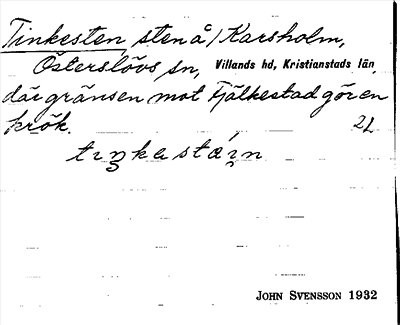 Tinkesten, sten å / Karsholm,
Österslövs sn, Villands hd, Kristianstads län,
där gränsen mot Fjälkestad gör en
krök. 2L
tıŋkastáın
JOHN SVENSSON 1932